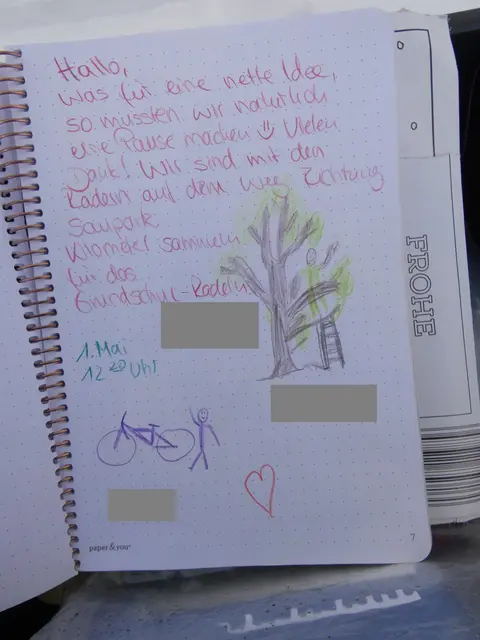 Hallo,
was für eine nette Idee,
so mussten wir natürlich
eine Pause machen Vielen
Dank! Wir sind mit den
Rädern auf dem Weg Richtung
Saupark
Kilometer sammeln
für das
Grundschul-Radeln
1. Mai
12 20 Uhr
paper&you
7
FROHE